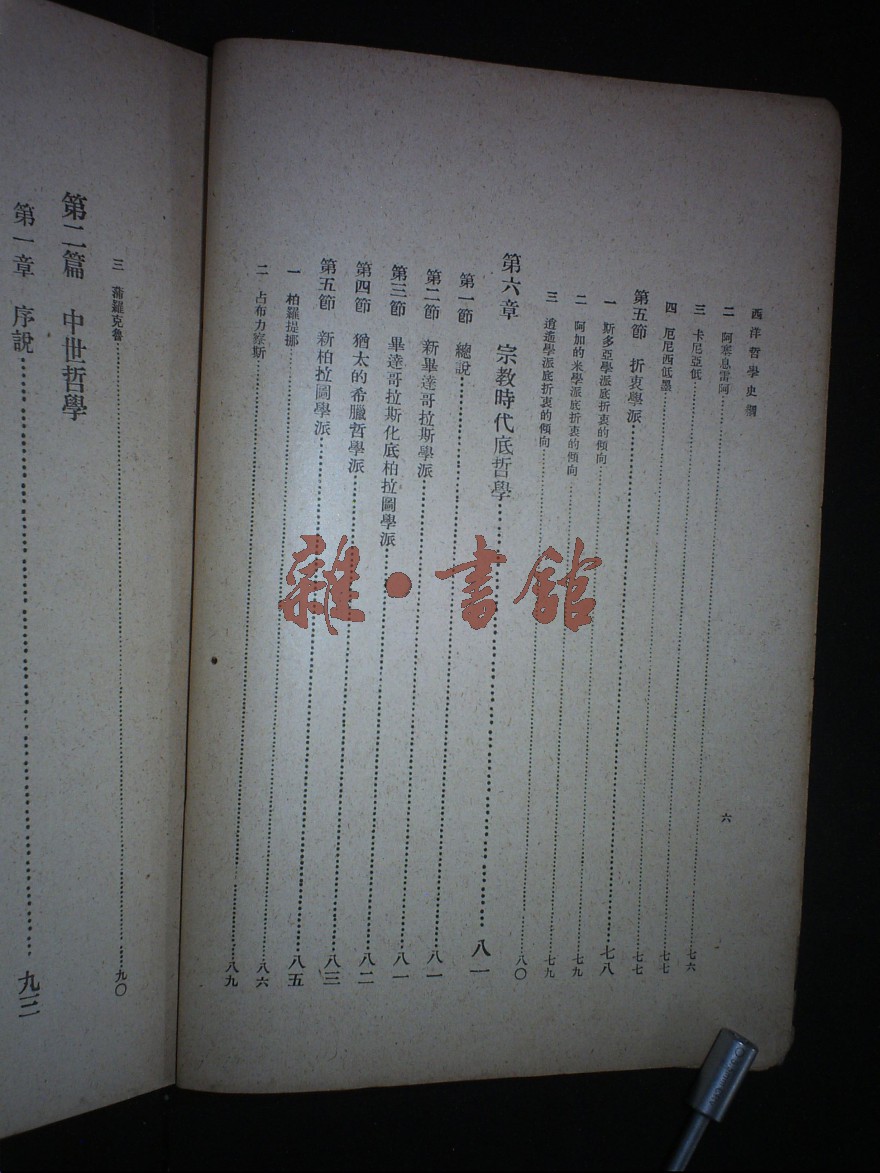 西洋哲學史綱
六
二 阿塞息雷阿……七六
三 卡尼亞低……七七
四 厄尼西低墨……七七
第五節 折衷學派……七八
一 斯多亞學派底折衷的傾向……七九
二 阿加的米學派底折衷的傾向……七九
三 逍遙學派底折衷的傾向……八〇
第六章 宗教時代底哲學……八一
第一節 總說……八一
第二節 新畢達哥拉斯學派……八一
第三節 畢達哥拉斯化底柏拉圖學派……八二
第四節 猶太的希臘哲學派……八三
第五節 新柏拉圖學派……八五
一 柏羅提挪……八六
二 占布力察斯……八九
三 蒲羅克魯……九〇
第二篇 中世哲學
第一章 序說……九三
雜·書館